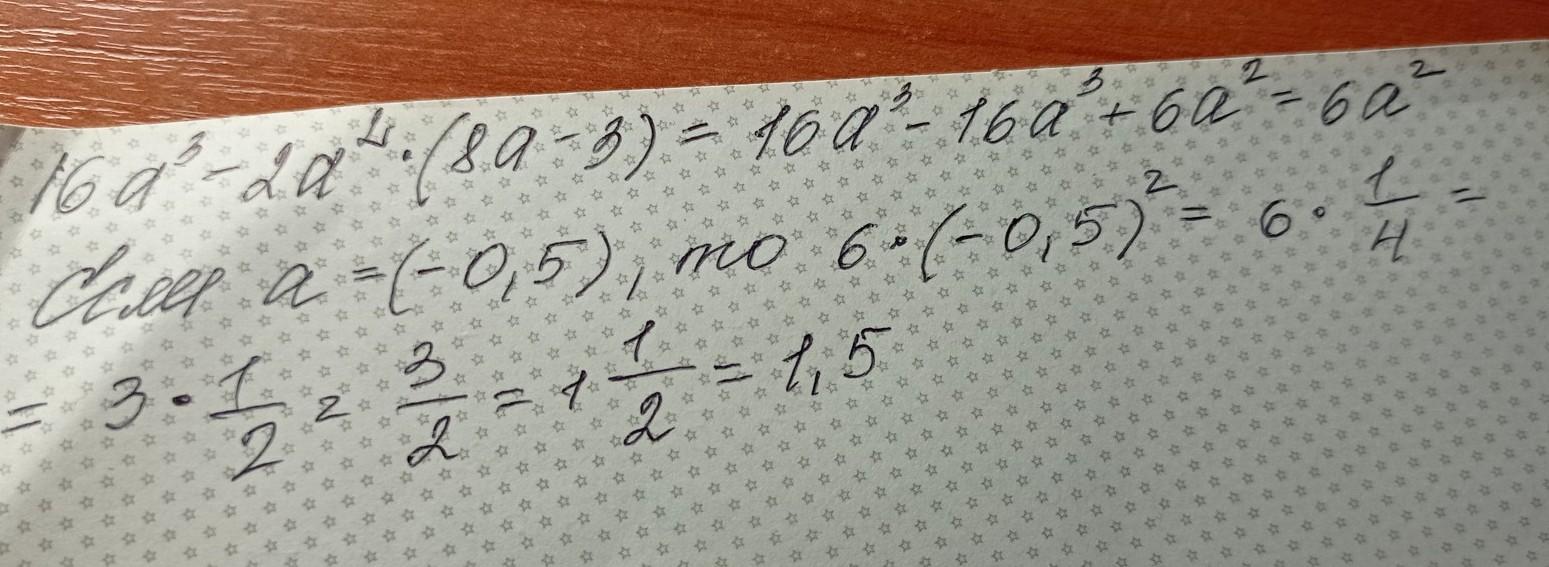 16a³ - 2a²·(8a - 3) = 16a³ - 16a³ + 6a² = 6a²
Если a = (-0,5), то 6·(-0,5)² = 6 · 1/4 =
= 3 · 1/2 = 3/2 = 1 1/2 = 1,5